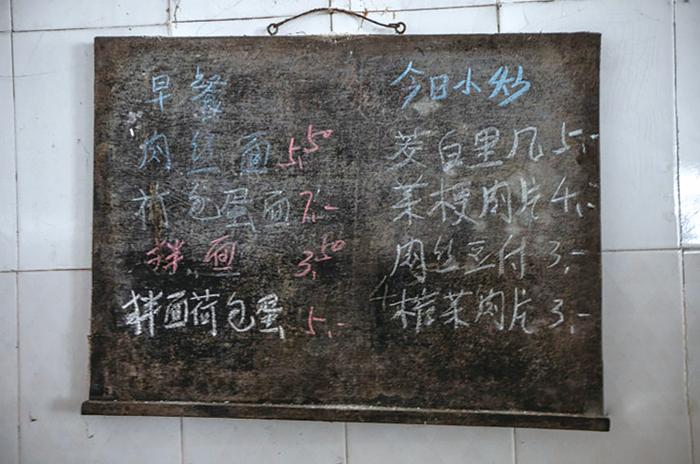 早餐
肉丝面 5,50
荷包蛋面 7,-
拌面 3,50
拌面荷包蛋 5,-
今日小炒
茭白里几 5,-
菜梗肉片 4,-
肉丝豆付 3,-
榨菜肉片 3,-